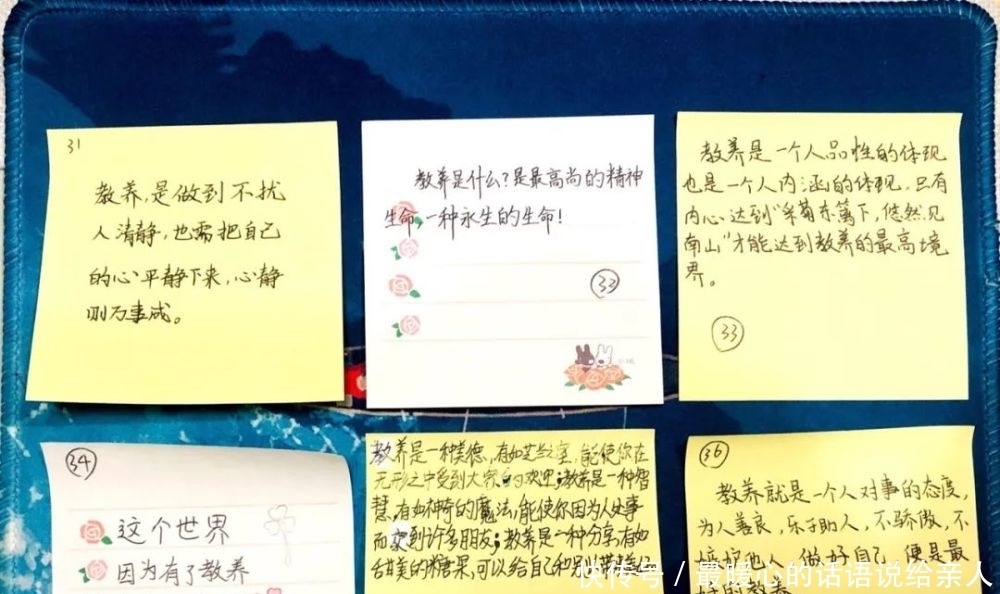 31
教养,是做到不扰
人清静,也需把自己
的心平静下来,心静
则万事成。
教养是什么?是最高尚的精神
生命,一种永生的生命!
33
教养是一个人品性的体现
也是一个人内涵的体现,只有
内心达到“采菊东篱下,悠然见
南山”才能达到教养的最高境
界。
33
34
这个世界
因为有了教养
教养是一种美德,有如芝兰之室,能使你在
无形之中受到大家的欢迎;教养是一种智
慧,有如神奇的魔法,能使你因为人处事
而交到许多朋友;教养是一种分享,有如
甜美的糖果,可以给自己和别人带来
36
教养就是一个人对事的态度,
为人善良,乐于助人,不骄傲,不
他人 做好自己 便是最
好的教养
快传号 / 最暖心的话语说给亲人